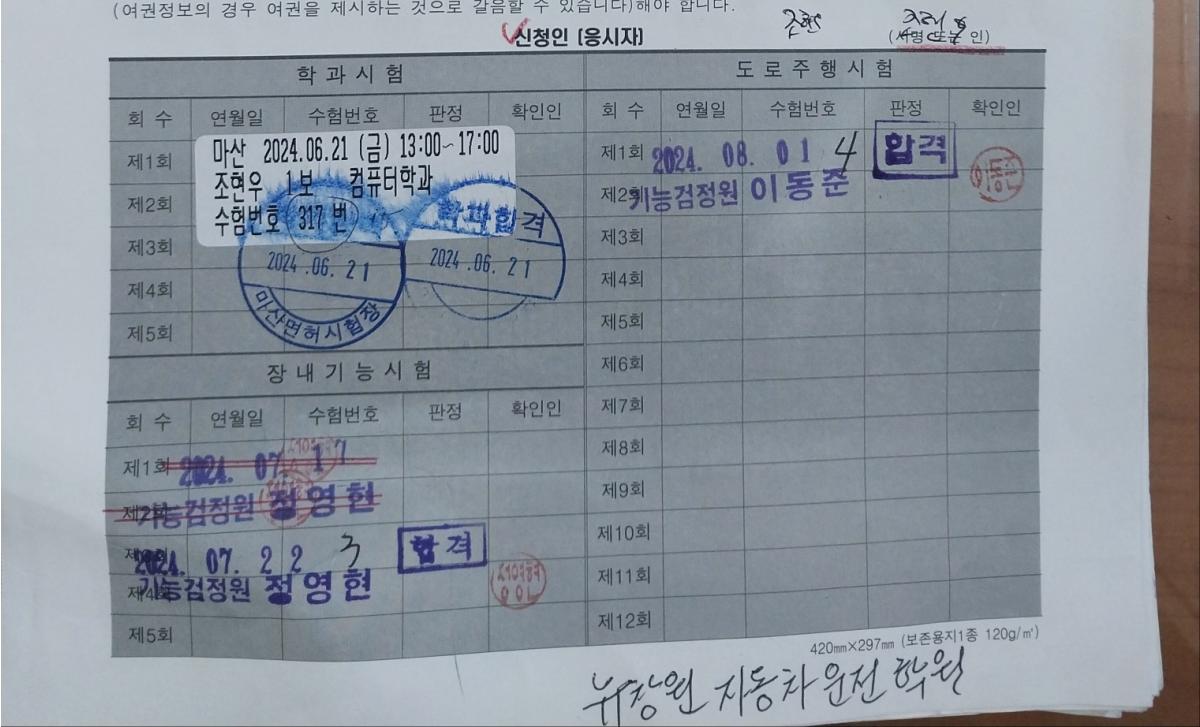 (여권정보의 경우 여권을 제시하는 것으로 갈음할 수 있습니다)해야 합니다.
신청인 [응시자]
(서명 또는 인)
학 과 시 험
회 수 연월일 수험번호 판정 확인인
제1회
마산 2024.06.21 (금) 13:00~17:00
조현우 1보 컴퓨터학과
제2회
수험번호 317 번
학과합격
제3회
2024.06.21
2024.06.21
제4회
마산면허시험장
제5회
장 내 기 능 시 험
회 수 연월일 수험번호 판정 확인인
제1회 2024. 07. 17
제2회 기능검정원 정영현
2024. 07. 22 3 합격
제4회 기능검정원 정영현
제5회
도 로 주 행 시 험
회 수 연월일 수험번호 판정 확인인
제1회 2024. 08. 01 4 합격
제2회 기능검정원 이동준
제3회
제4회
제5회
제6회
제7회
제8회
제9회
제10회
제11회
제12회
420㎜×297㎜ (보존용지1종 120g/㎡)
뉴창원 자동차운전학원